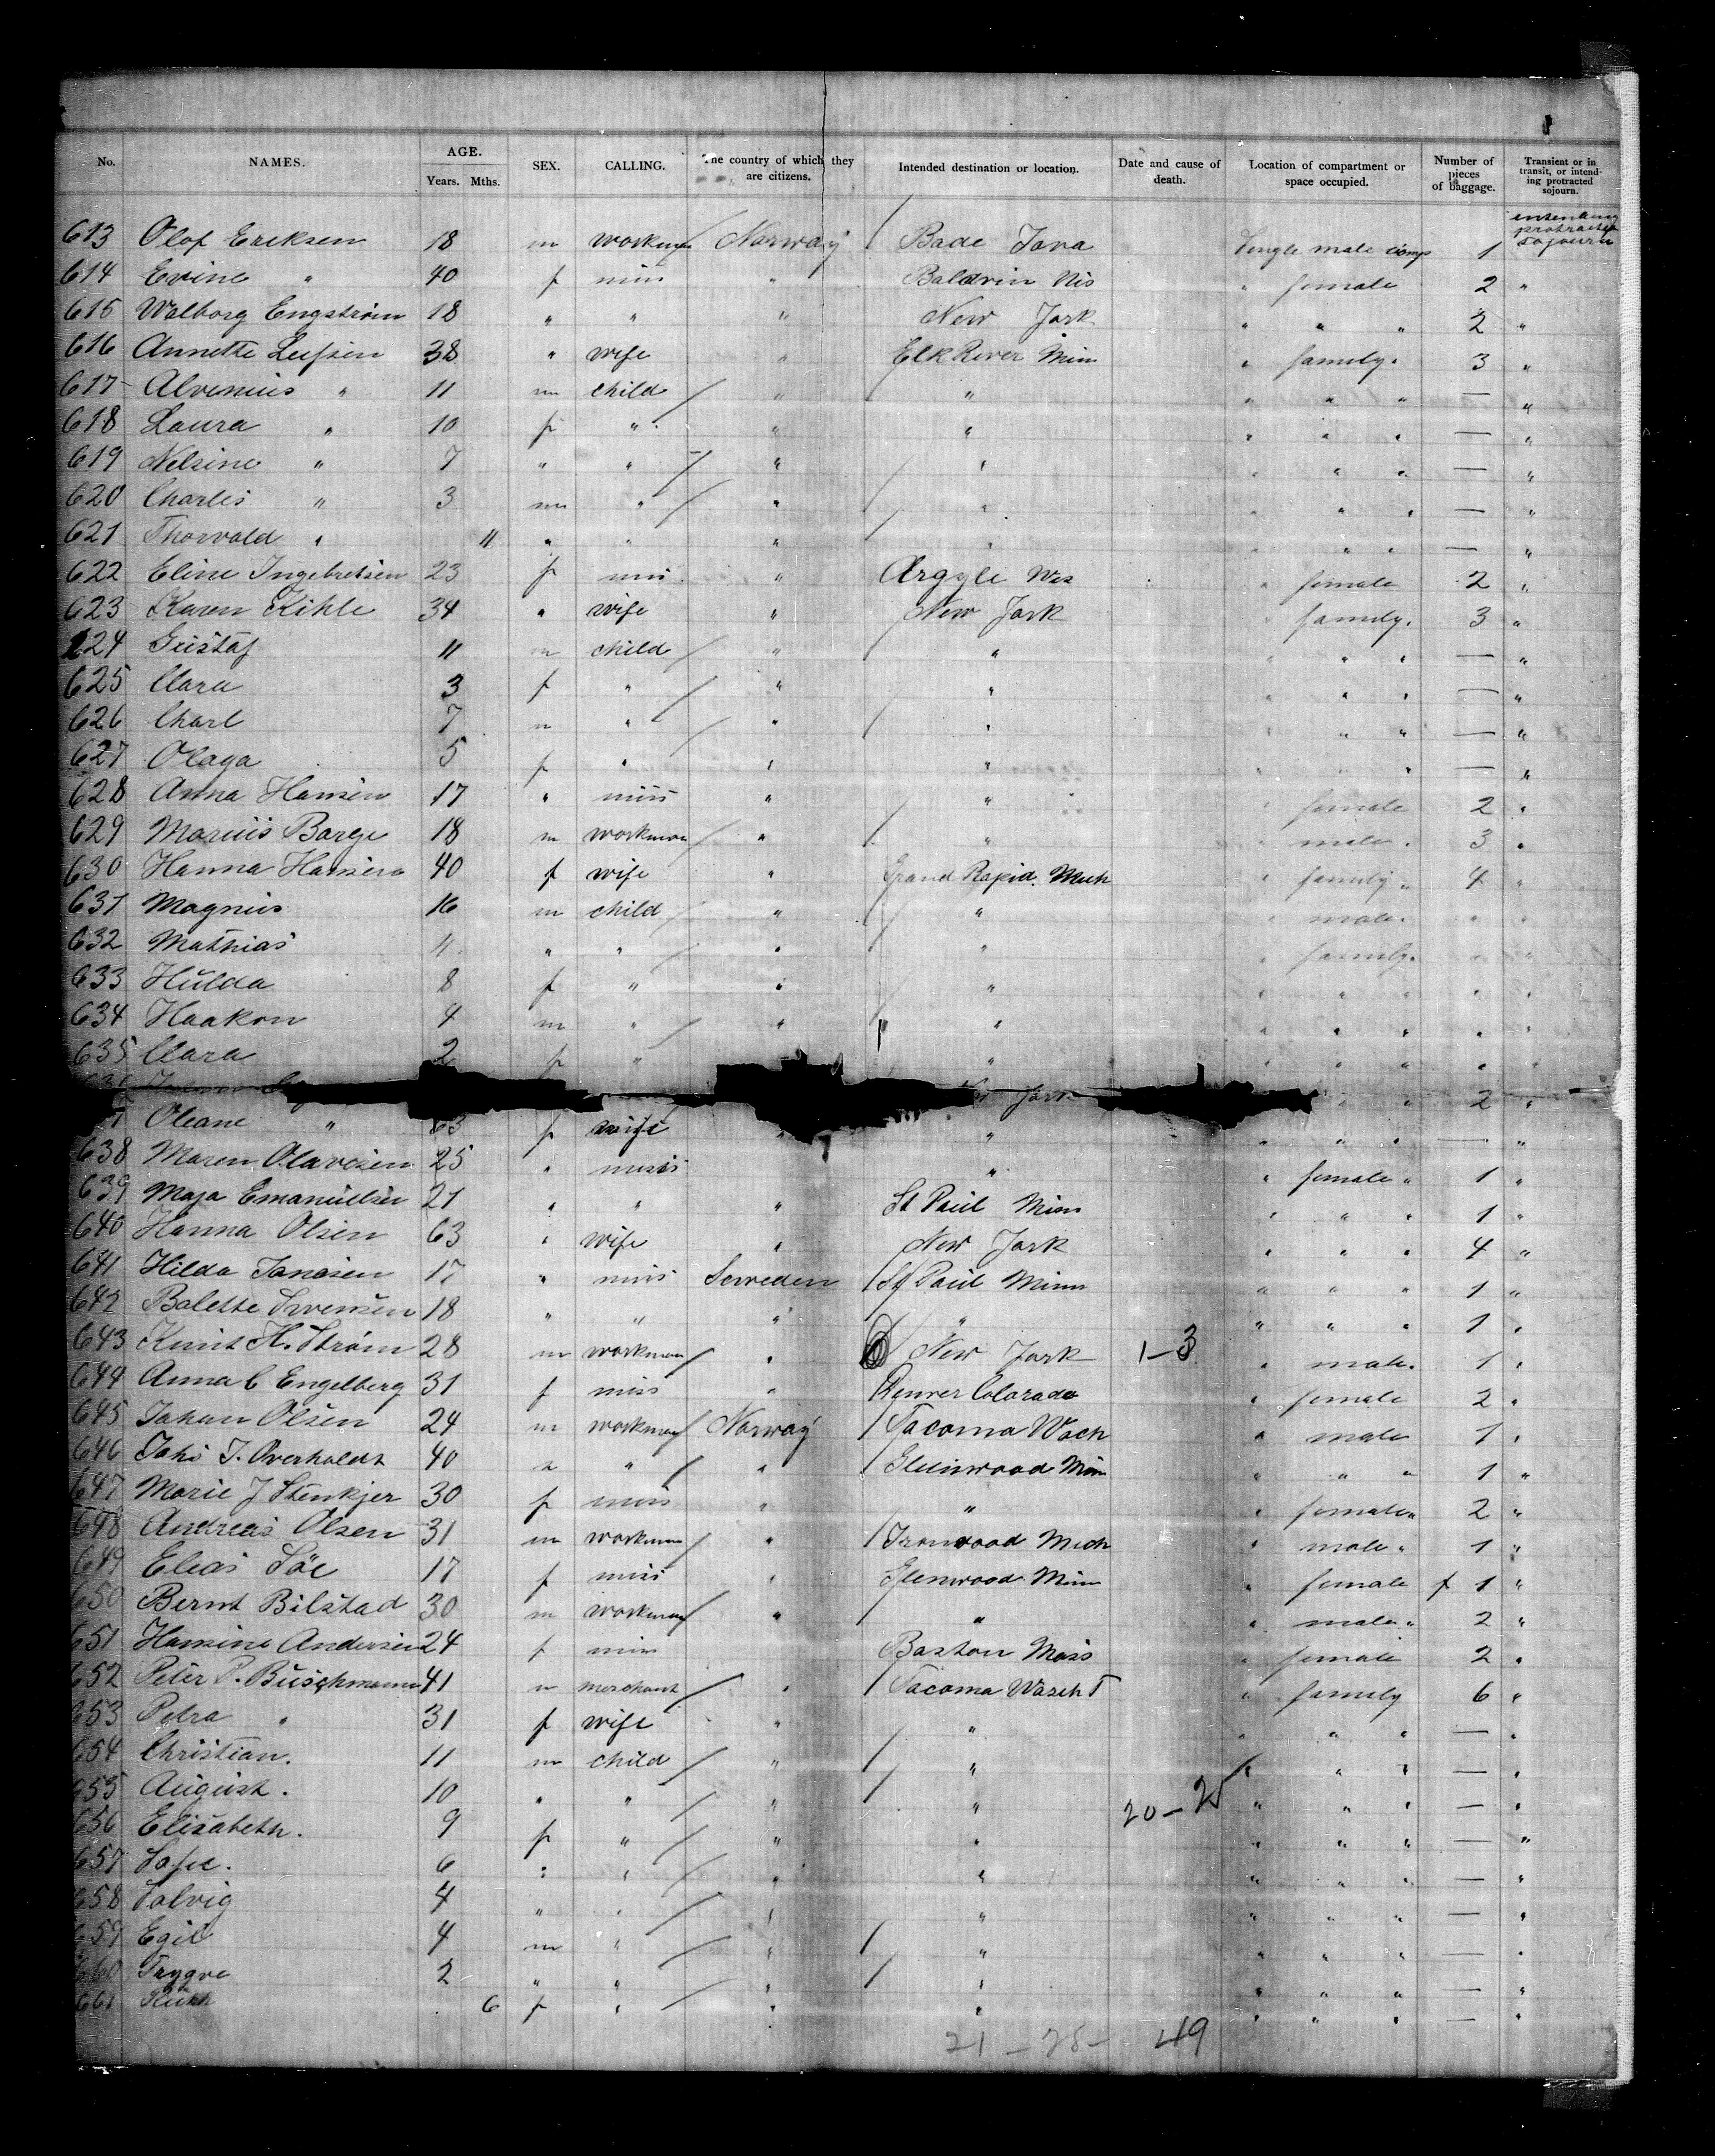 No. NAMES. AGE. Years. Mths. SEX. CALLING. The country of which they are citizens. Intended destination or location. Date and cause of death. Location of compartment or space occupied. Number of pieces of baggage. Transient or in transit, or intending protracted sojourn.
613 Olof Eriksen 18 m workman Norway Bade Iova Single male comp 1 protracted sojourn
614 Evine " 40 f miss " Baldvin Wis " female 2 "
615 Walborg Engström 18 " " " New Jork " " " 2 "
616 Annette Leifsen 38 " wife " Elk River Min " family. 3 "
617 Alvenius " 11 m child " " " " " — "
618 Laura " 10 f " " " " " " — "
619 Nelsine " 7 " " " " " " " — "
620 Charles " 3 m " " " " " " — "
621 Thorvald " 11 " " " " " " " — "
622 Eline Ingebretsen 23 f miss " Argyle Wis " female 2 "
623 Karen Kihle 34 " wife " New Jork " family. 3 "
624 Gustaf 11 m child " " " " " — "
625 Clara 3 f " " " " " " — "
626 Charl 7 m " " " " " " — "
627 Olaga 5 f " " " " " " — "
628 Anna Hansen 17 " miss " " " female 2 "
629 Marius Barge 18 m workman " " " male. 3 "
630 Hanna Hansen 40 f wife " Grand Rapid. Mich " family " 4 "
631 Magnus 16 m child " " " male. " "
632 Mathias 11 " " " " " family. " "
633 Hulda 8 f " " " " " " " "
634 Haakon 4 m " " " " " " " "
635 Clara 2 f " " " " " " "
Jork " " 2 "
Oleane " 63 f wife " " " " " — "
638 Maren Olavesen 25 " miss " " female " 1 "
639 Maja Emanuelsen 21 " " " St Paul Minn " " " 1 "
640 Hanna Olsen 63 " wife " New Jork " " " 4 "
641 Hilda Janasen 17 " miss Sweden St Paul Minn " " " 1 "
642 Balette Svensen 18 " " " " " " " 1 "
643 Knut H. Strøm 28 m workman " New Jork 1-3 " male. 1 "
644 Anna C Engelberg 31 f miss " Denver Colorado " female 2 "
645 Johan Olsen 24 m workman Norway Tacoma Wach " male 1 "
646 Johs J. Overholdt 40 " " " Gleinwood Min " " " 1 "
647 Marie J Stenkjer 30 f miss " " " female " 2 "
648 Andreas Olsen 31 m workman " Ironwood Mich " male " 1 "
649 Eleas 17 f miss " Glenwood Minn " female f 1 "
650 Bernt Bilstad 30 m workman " " " male " 2 "
651 Hansine Andersen 24 f miss Baston Mass " female 2 "
652 Peter P. Buschmann 41 m merchant " Tacoma Wasch T " family 6 "
653 Petra " 31 f wife " " " " " — "
654 Christian. 11 m child " " " " " — "
655 August. 10 " " " " 20-25 " " " — "
656 Elisabeth. 9 f " " " " " " — "
657 Sofie. 6 " " " " " " " — "
658 Solvig 4 " " " " " " " — "
659 Egil 4 m " " " " " " — "
660 Trygve 2 " " " " " " " — "
661 Ruth 6 f " " " " " " — "
21 - 28 - 49